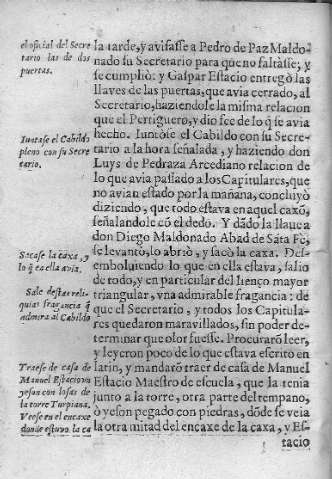 el oficial del Secre
tario las de dos
puertas.
Iuntase el Cabildo
pleno con su Secre
tario.
Sacase la caxa, y
lo q̃ en ella avia.
Sale destas reli-
quias fragancia q̃
admira al Cabildo
Traese de casa de
Manuel Estacio un
yeson con losas de
la torre Turpiana.
Veese en el encaxe
donde estuvo la ca
la tarde, y avisasse a Pedro de Paz Maldo-
nado su Secretario para que no faltasse; y
se cumpliò: y Gaspar Estacio entregò las
llaves de las puertas, que avia cerrado, al
Secretario, haziendole la misma relacion
que el Pertiguero, y dio fee de lo q̃ se avia
hecho. Iuntòse el Cabildo con su Secre-
tario a la hora señalada, y haziendo don
Luys de Pedraza Arcediano relacion de
lo que avia passado a los Capitulares, que
no avian estado por la mañana, concluyò
diziendo, que todo estava en aquel caxõ,
señalandole cõ el dedo. Y dãdo la llave a
don Diego Maldonado Abad de Sãta Fè,
se levantò, lo abriò, y sacò la caxa. Des-
emboluiendo lo que en ella estava, salio
de todo, y en particular del lienço mayor
triangular, vna admirable fragancia: de
que el Secretario, y todos los Capitula-
res quedaron maravillados, sin poder de-
terminar que olor fuesse. Procurarõ leer,
y leyeron poco de lo que estava escrito en
latin, y mandarõ traer de casa de Manuel
Estacio Maestro de escuela, que la tenia
junto a la torre, otra parte del tempano,
ò yeson pegado con piedras, dõde se veia
la otra mitad del encaxe de la caxa, y Es-
tacio